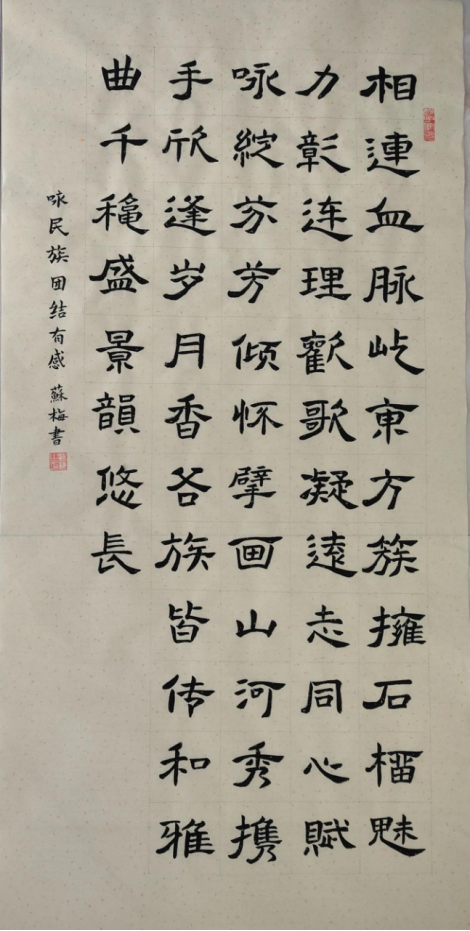 相連血脉屹東方簇擁石榴魅
力彰连理歡歌凝遠志同心賦
咏綻芬芳倾怀擘画山河秀携
手欣逢岁月香各族皆传和雅
曲千穐盛景韻悠長
咏民族团结有感 蘇梅書